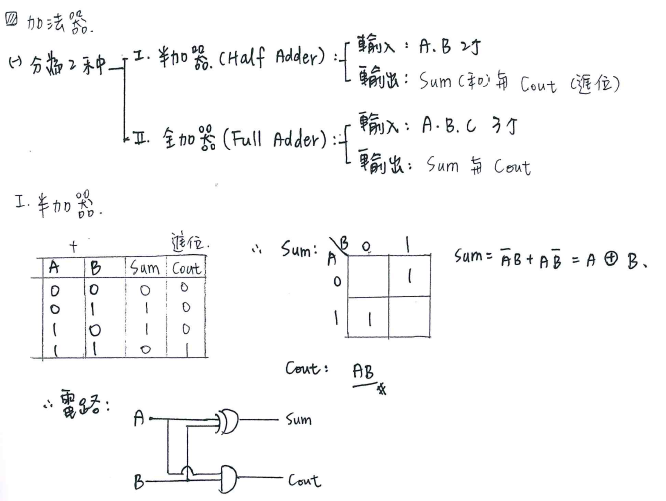 加法器.
(一) 分為2種
I. 半加器 (Half Adder): 輸入: A. B 2個
輸出: Sum (和) 與 Cout (進位)
II. 全加器 (Full Adder): 輸入: A. B. C 3個
輸出: Sum 與 Cout
I. 半加器.
+ 進位.
A B Sum Cout
0 0 0 0
0 1 1 0
1 0 1 0
1 1 0 1
∴ Sum: A\B 0 1
0 1
1 1
Sum = A̅B + AB̅ = A ⊕ B.
Cout: AB
∴ 電路:
A Sum
B Cout